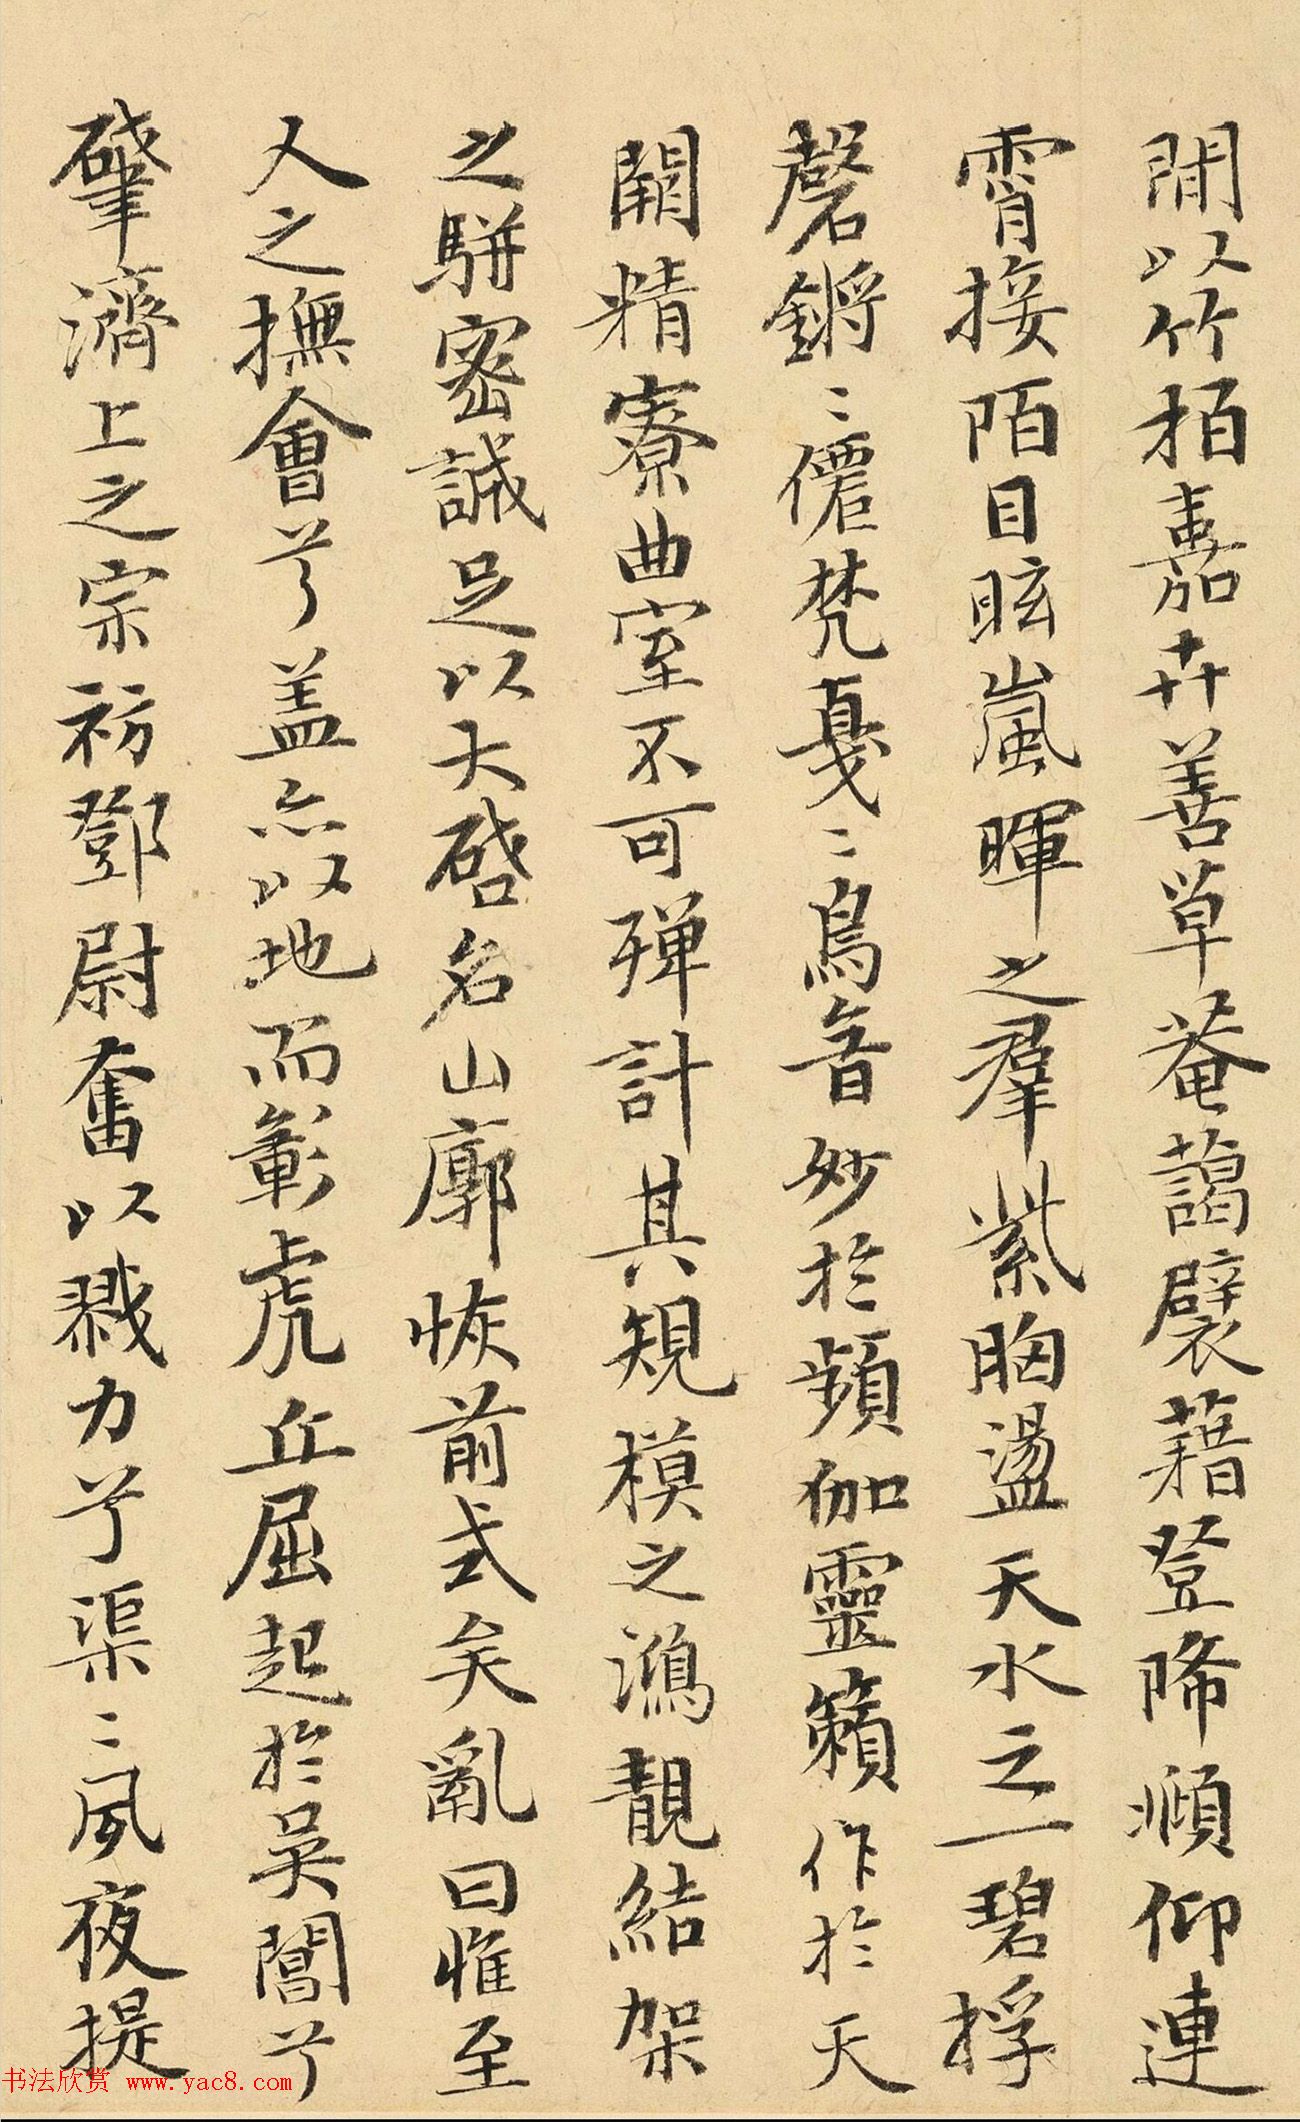 間以竹栢嘉卉善草菴藹襞藉登降順仰連
霄接陌目眩嵐暉之羣紫胸盪天水之一碧捊
磬鏘〻僊梵戛〻鳥音妙於頻伽靈籟作於天
闕精寮曲室不可殫計其規模之鴻靚結架
之駢密誠足以大啓名山廓恢前式矣亂曰惟至
人之撫會兮盖亦以地而彰虎丘屈起於吳閶兮
肇濟上之宗礽鄧尉奮以戮力兮渠〻夙夜提
书法欣赏 www.yac8.com